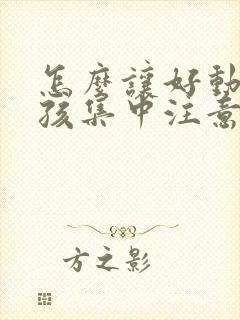 怎麼讓好動
孩集中注意
方之影